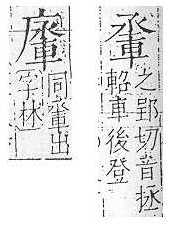 之郢切音拯
軺車後登
同出
字林